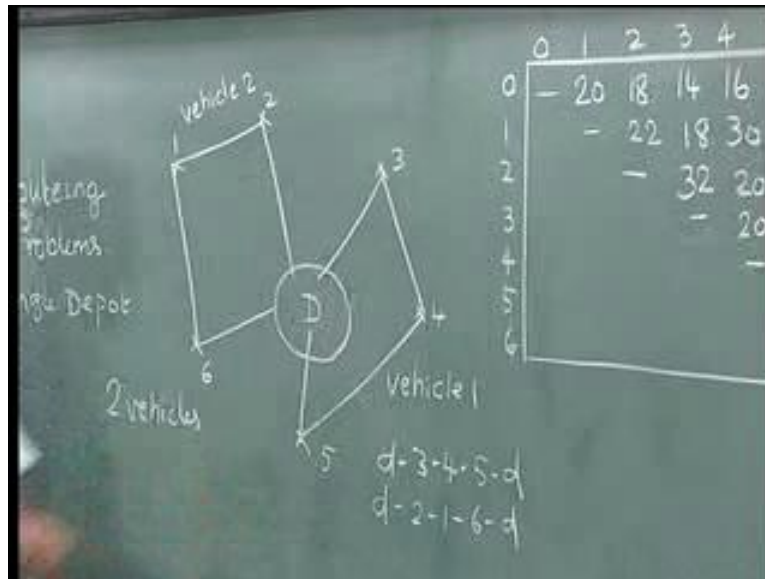 vehicle 2
1
2
3
4
5
6
D
Depot
2 vehicles
vehicle 1
d-3-4-5-d
d-2-1-6-d
0 1 2 3 4
0 - 20 18 14 16
1 - 22 18 30
2 - 32 20
3 - 20
4 -
5
6